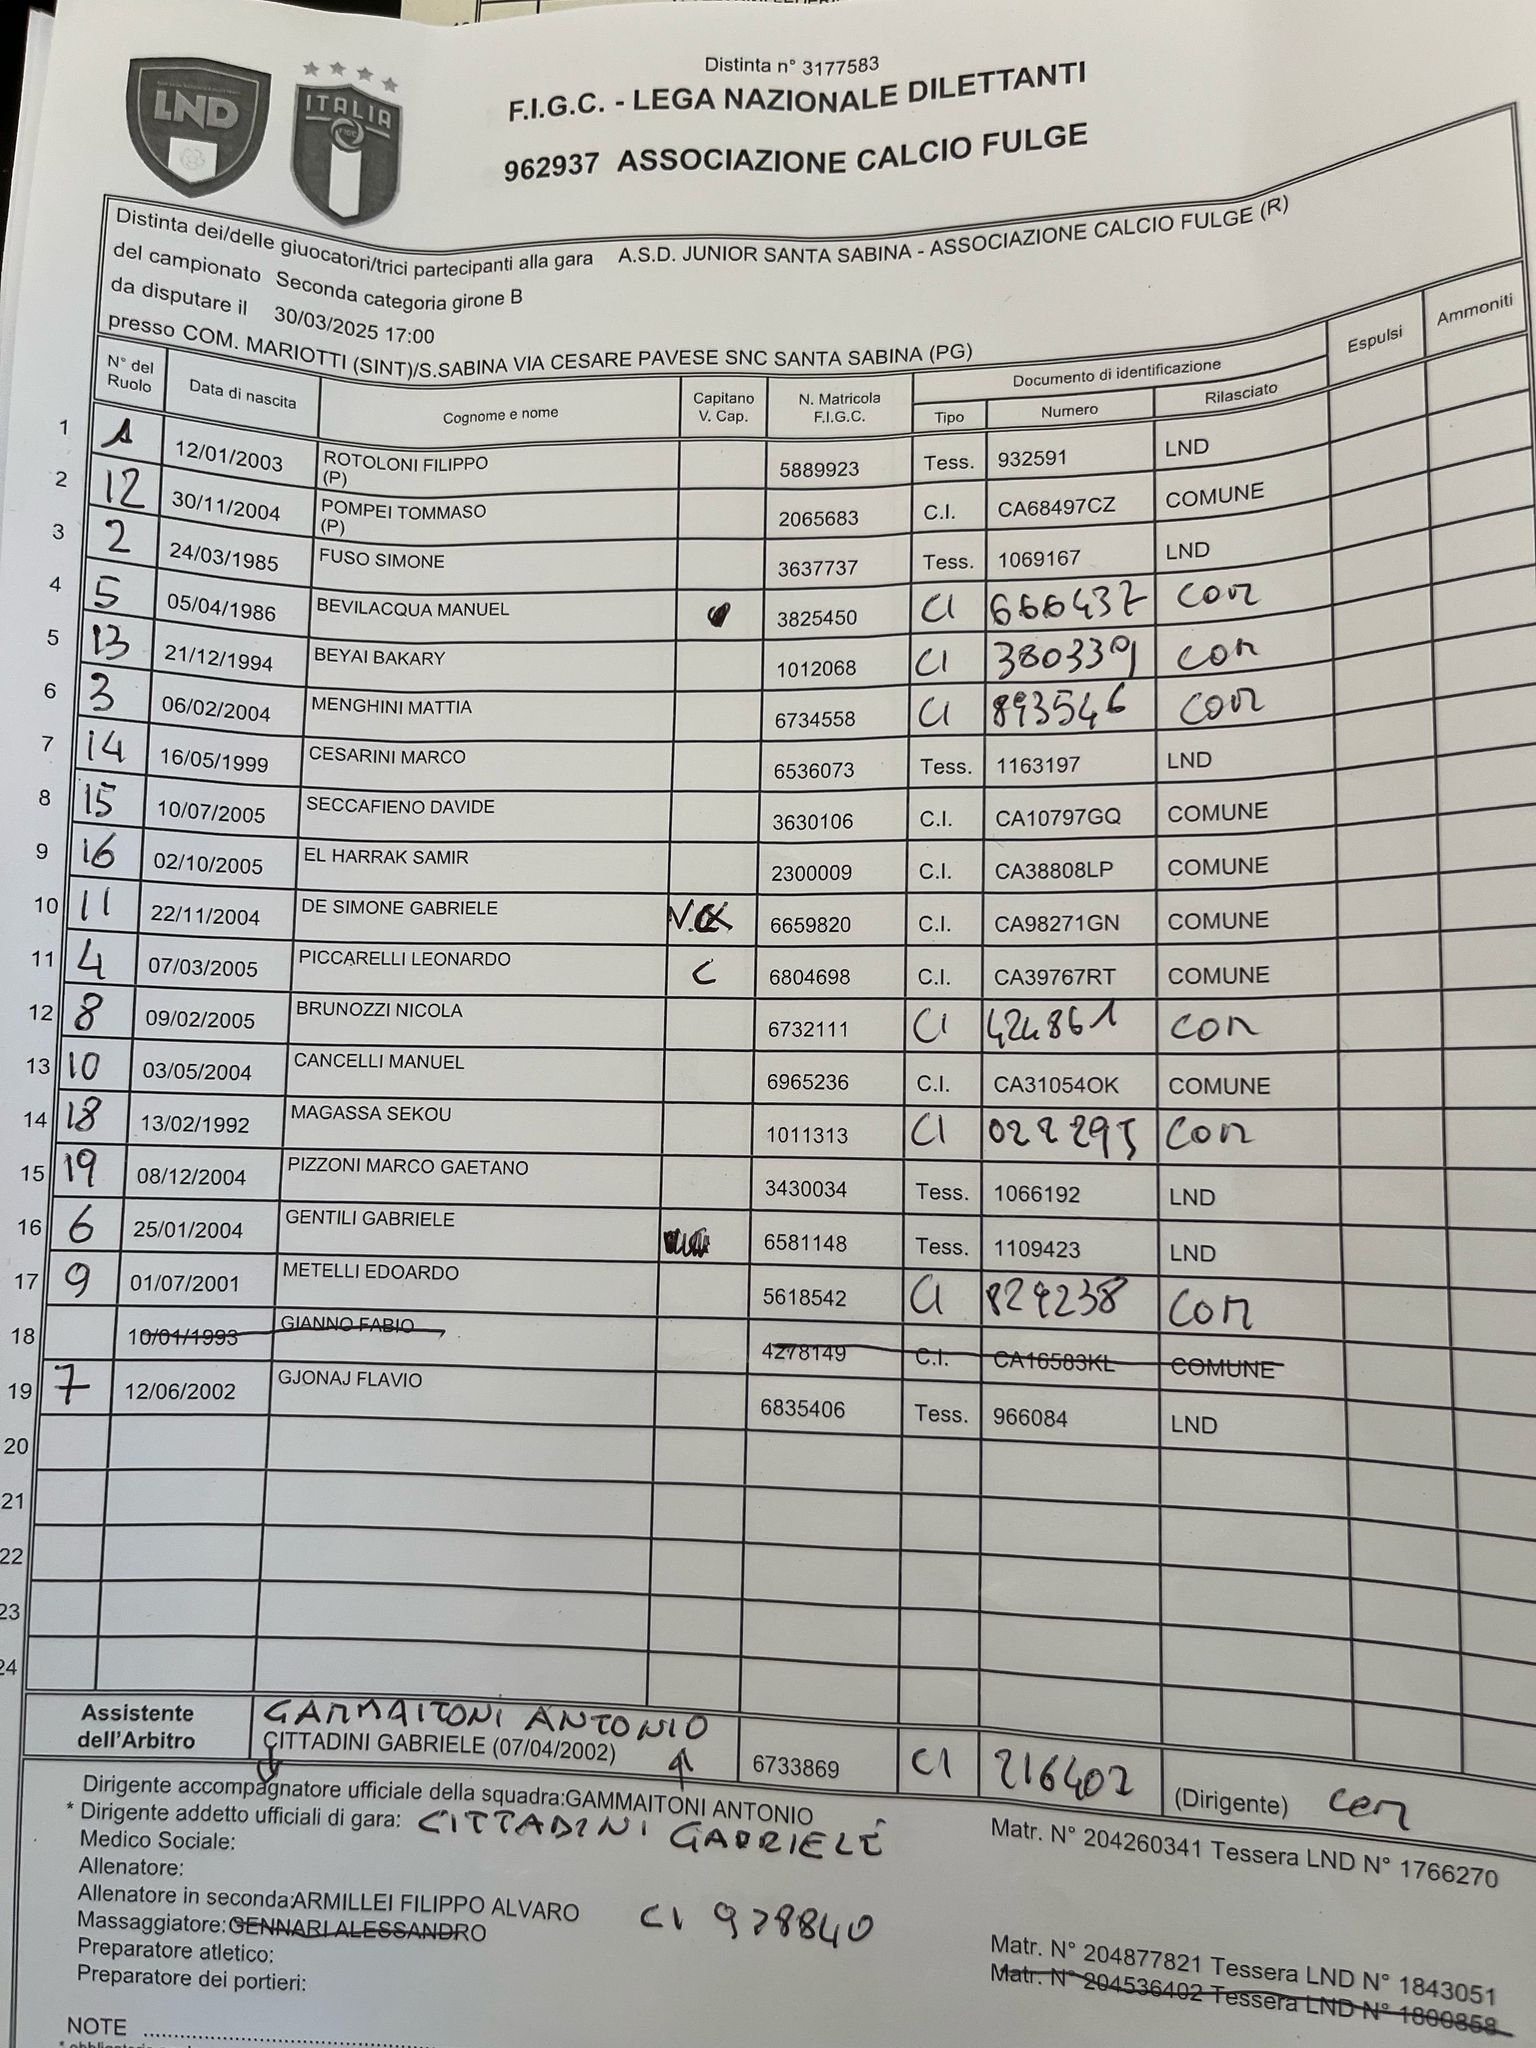 LND
ITALIA
FIGC
Distinta n° 3177583
F.I.G.C. - LEGA NAZIONALE DILETTANTI
962937 ASSOCIAZIONE CALCIO FULGE
Distinta dei/delle giuocatori/trici partecipanti alla gara A.S.D. JUNIOR SANTA SABINA - ASSOCIAZIONE CALCIO FULGE (R)
del campionato Seconda categoria girone B
da disputare il 30/03/2025 17:00
presso COM. MARIOTTI (SINT)/S.SABINA VIA CESARE PAVESE SNC SANTA SABINA (PG)
N° del Ruolo Data di nascita Cognome e nome Capitano V. Cap. N. Matricola F.I.G.C. Documento di identificazione Tipo Numero Rilasciato Espulsi Ammoniti
1 1 12/01/2003 ROTOLONI FILIPPO (P) 5889923 Tess. 932591 LND
2 12 30/11/2004 POMPEI TOMMASO (P) 2065683 C.I. CA68497CZ COMUNE
3 2 24/03/1985 FUSO SIMONE 3637737 Tess. 1069167 LND
4 5 05/04/1986 BEVILACQUA MANUEL 3825450 CI 666437 COM
5 13 21/12/1994 BEYAI BAKARY 1012068 CI 380339 COM
6 3 06/02/2004 MENGHINI MATTIA 6734558 CI 893546 COM
7 14 16/05/1999 CESARINI MARCO 6536073 Tess. 1163197 LND
8 15 10/07/2005 SECCAFIENO DAVIDE 3630106 C.I. CA10797GQ COMUNE
9 16 02/10/2005 EL HARRAK SAMIR 2300009 C.I. CA38808LP COMUNE
10 11 22/11/2004 DE SIMONE GABRIELE V.C 6659820 C.I. CA98271GN COMUNE
11 4 07/03/2005 PICCARELLI LEONARDO C 6804698 C.I. CA39767RT COMUNE
12 8 09/02/2005 BRUNOZZI NICOLA 6732111 CI 424861 COM
13 10 03/05/2004 CANCELLI MANUEL 6965236 C.I. CA31054OK COMUNE
14 18 13/02/1992 MAGASSA SEKOU 1011313 CI 022295 COM
15 19 08/12/2004 PIZZONI MARCO GAETANO 3430034 Tess. 1066192 LND
16 6 25/01/2004 GENTILI GABRIELE 6581148 Tess. 1109423 LND
17 9 01/07/2001 METELLI EDOARDO 5618542 CI 829238 COM
18 10/01/1993 GIANNO FABIO 4278149 C.I. CA16583KL COMUNE
19 7 12/06/2002 GJONAJ FLAVIO 6835406 Tess. 966084 LND
20
21
22
23
24
Assistente dell'Arbitro GAMMAITONI ANTONIO
CITTADINI GABRIELE (07/04/2002) 6733869 CI 216402 (Dirigente) COM
Dirigente accompagnatore ufficiale della squadra:GAMMAITONI ANTONIO Matr. N° 204260341 Tessera LND N° 1766270
* Dirigente addetto ufficiali di gara: CITTADINI GABRIELE
Medico Sociale:
Allenatore:
Allenatore in seconda:ARMILLEI FILIPPO ALVARO CI 978840 Matr. N° 204877821 Tessera LND N° 1843051
Massaggiatore:GENNARI ALESSANDRO Matr. N° 204536402 Tessera LND N° 1800858
Preparatore atletico:
Preparatore dei portieri:
NOTE